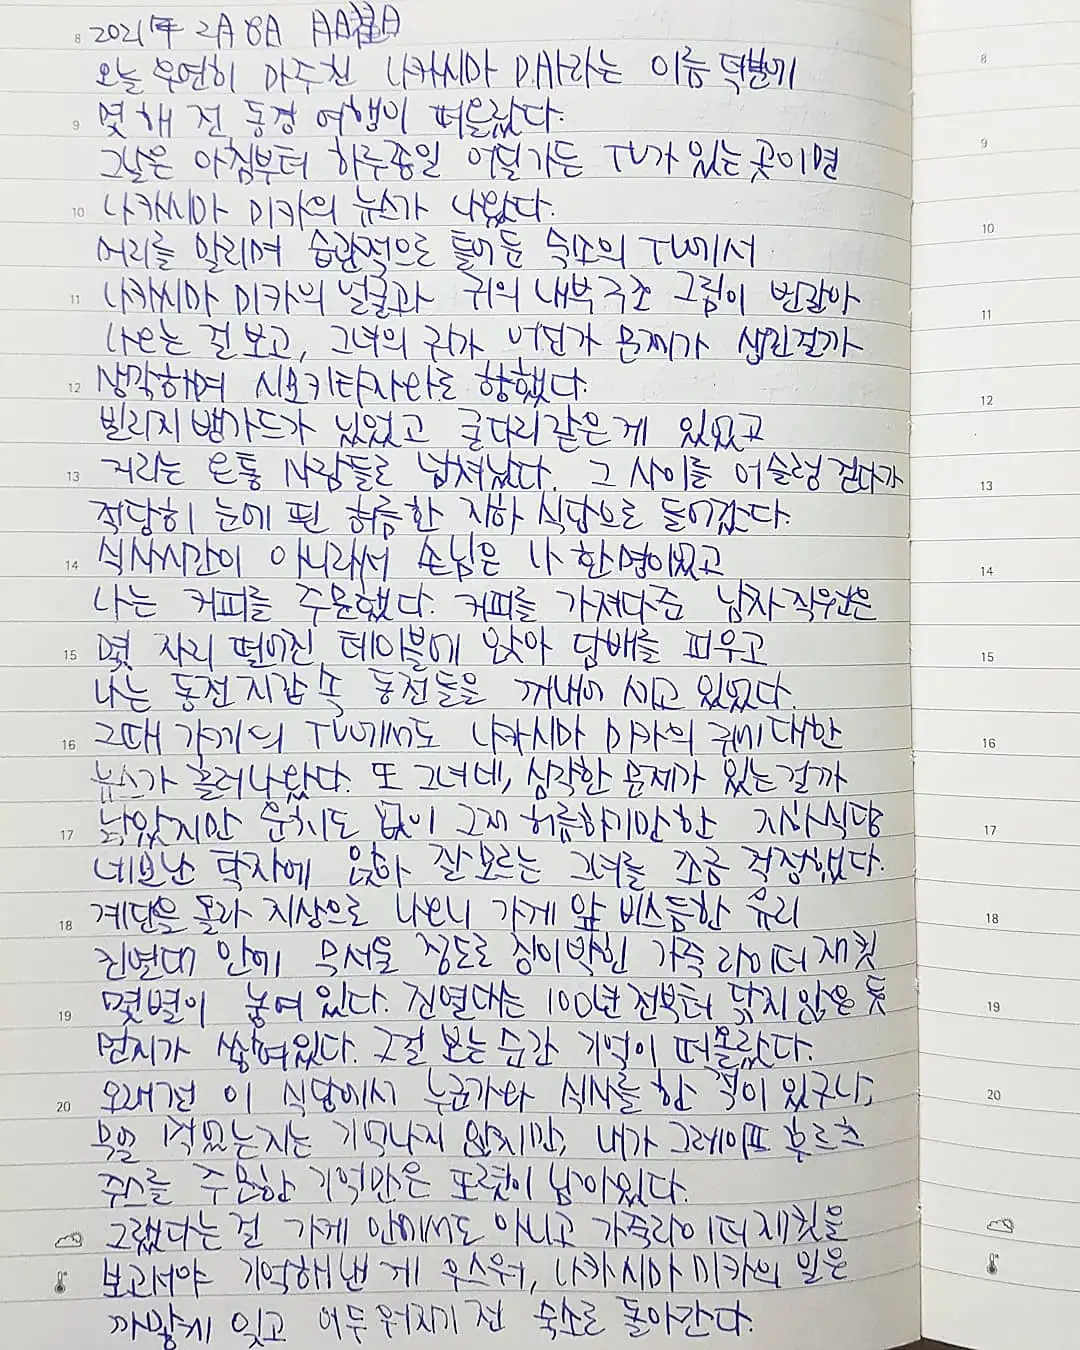 8 2021年 2月 8日
오늘 우연히 마주친 나카시마 미카라는 이름 덕분에
8
9 몇 해 전 동경 여행이 떠올랐다.
9
그날은 아침부터 하루종일 어딜가든 TV가 있는 곳이면
10 나카시마 미카의 뉴스가 나왔다.
10
머리를 말리며 습관적으로 틀어둔 숙소의 TV에서
11 나카시마 미카의 얼굴과 귀의 내부구조 그림이 번갈아
11
나오는 걸 보고, 그녀의 귀가 어딘가 문제가 생긴걸까
12 생각하며 시모키타자와로 향했다.
12
빌리지뱅가드가 있었고 굴다리같은게 있었고
13 거리는 온통 사람들로 넘쳐났다. 그 사이를 어슬렁 걷다가
13
적당히 눈에 띈 허름한 지하 식당으로 들어갔다.
14 식사시간이 아니라서 손님은 나 한명이었고
14
나는 커피를 주문했다. 커피를 가져다준 남자직원은
15 몇 자리 떨어진 테이블에 앉아 담배를 피우고
15
나는 동전지갑 속 동전들을 꺼내어 세고 있었다.
16 그때 가게의 TV에서도 나카시마 미카의 귀에 대한
16
뉴스가 흘러나왔다. 또 그녀네, 심각한 문제가 있는걸까
17 낡았지만 운치도 없이 그저 허름하기만한 지하식당
17
네모난 탁자에 앉아 잘 모르는 그녀를 조금 걱정했다.
18 계단을 올라 지상으로 나오니 가게 앞 비스듬한 유리
18
진열대 안에 무서울 정도로 징이박힌 가죽 라이더 재킷
19 몇벌이 놓여있다. 진열대는 100년 전부터 닦지 않은 듯
19
먼지가 쌓여있다. 그걸 보는 순간 기억이 떠올랐다.
20 오래전 이 식당에서 누군가와 식사를 한 적이 있구나,
20
무얼 먹었는지는 기억나지 않지만, 내가 그레이프 후르츠
쥬스를 주문한 기억만은 또렷이 남아있다.
그랬다는 걸 가게 안에서도 아니고 가죽라이더재킷을
보고서야 기억해낸 게 우스워, 나카시마 미카의 일은
까맣게 잊고 어두워지기 전 숙소로 돌아간다.